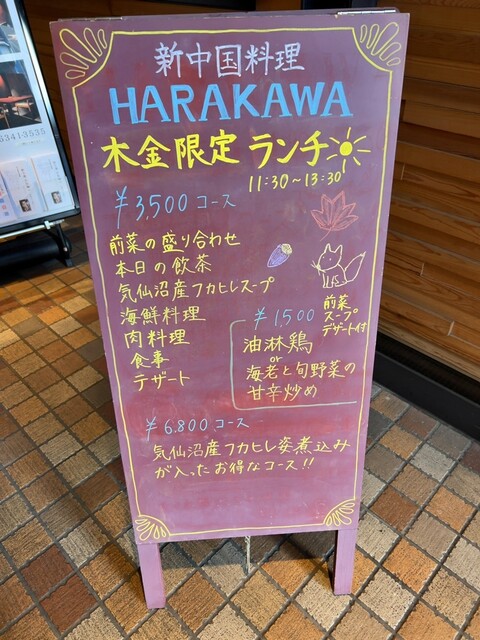 新中国料理
HARAKAWA
木金限定 ランチ
11:30～13:30
¥3,500 コース
前菜の盛り合わせ
本日の飲茶
気仙沼産フカヒレスープ
海鮮料理
肉料理
食事
デザート
¥1,500
前菜
スープ
デザート付
油淋鶏
or
海老と旬野菜の
甘辛炒め
¥6.800 コース
気仙沼産フカヒレ姿煮込み
が入ったお得なコース!!